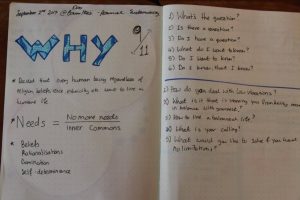 September 2nd 2019
WHY
8/11
Decided that every human being regardless of
religion, beliefs, race ethnicity etc want to live a
humane life.
Needs = No more needs
inner Commons
Beliefs
Rationalisations
Domination
Self-determinance
1) What's the question?
2) Is there a question?
3) Do I have a question?
4) What do I want to know?
5) Do I want to know?
6) Do I know that I know?
1) How do you deal with low vibrations?
2) What is it that is keeping you from being more
in balance with yourself?
3) How to live a balanced life?
4) What is your calling?
5) What would you like to solve if you have
no limitations?